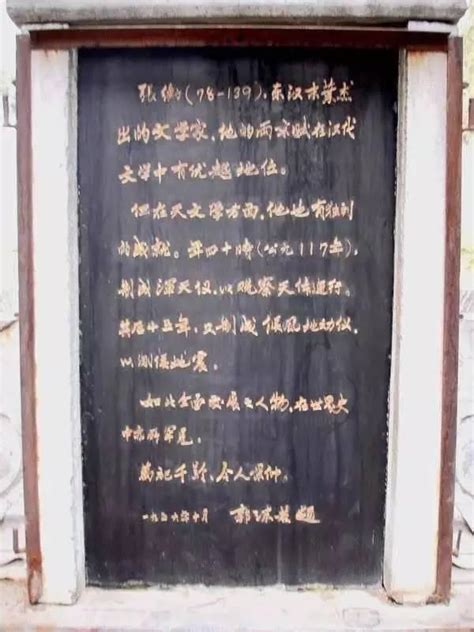 张衡(78-139),东汉末叶杰
出的文学家,他的两京赋在汉代
文学中有优越地位。
但在天文学方面,他也有独到
的成就。年四十时(公元117年),
制成浑天仪,以观察天体运行。
其后十五年,又制成候风地动仪,
以测候地震。
如此全面发展之人物,在世界史
中亦所罕见。
万祀千龄,令人景仰。
一九五六年十月 郭沫若题